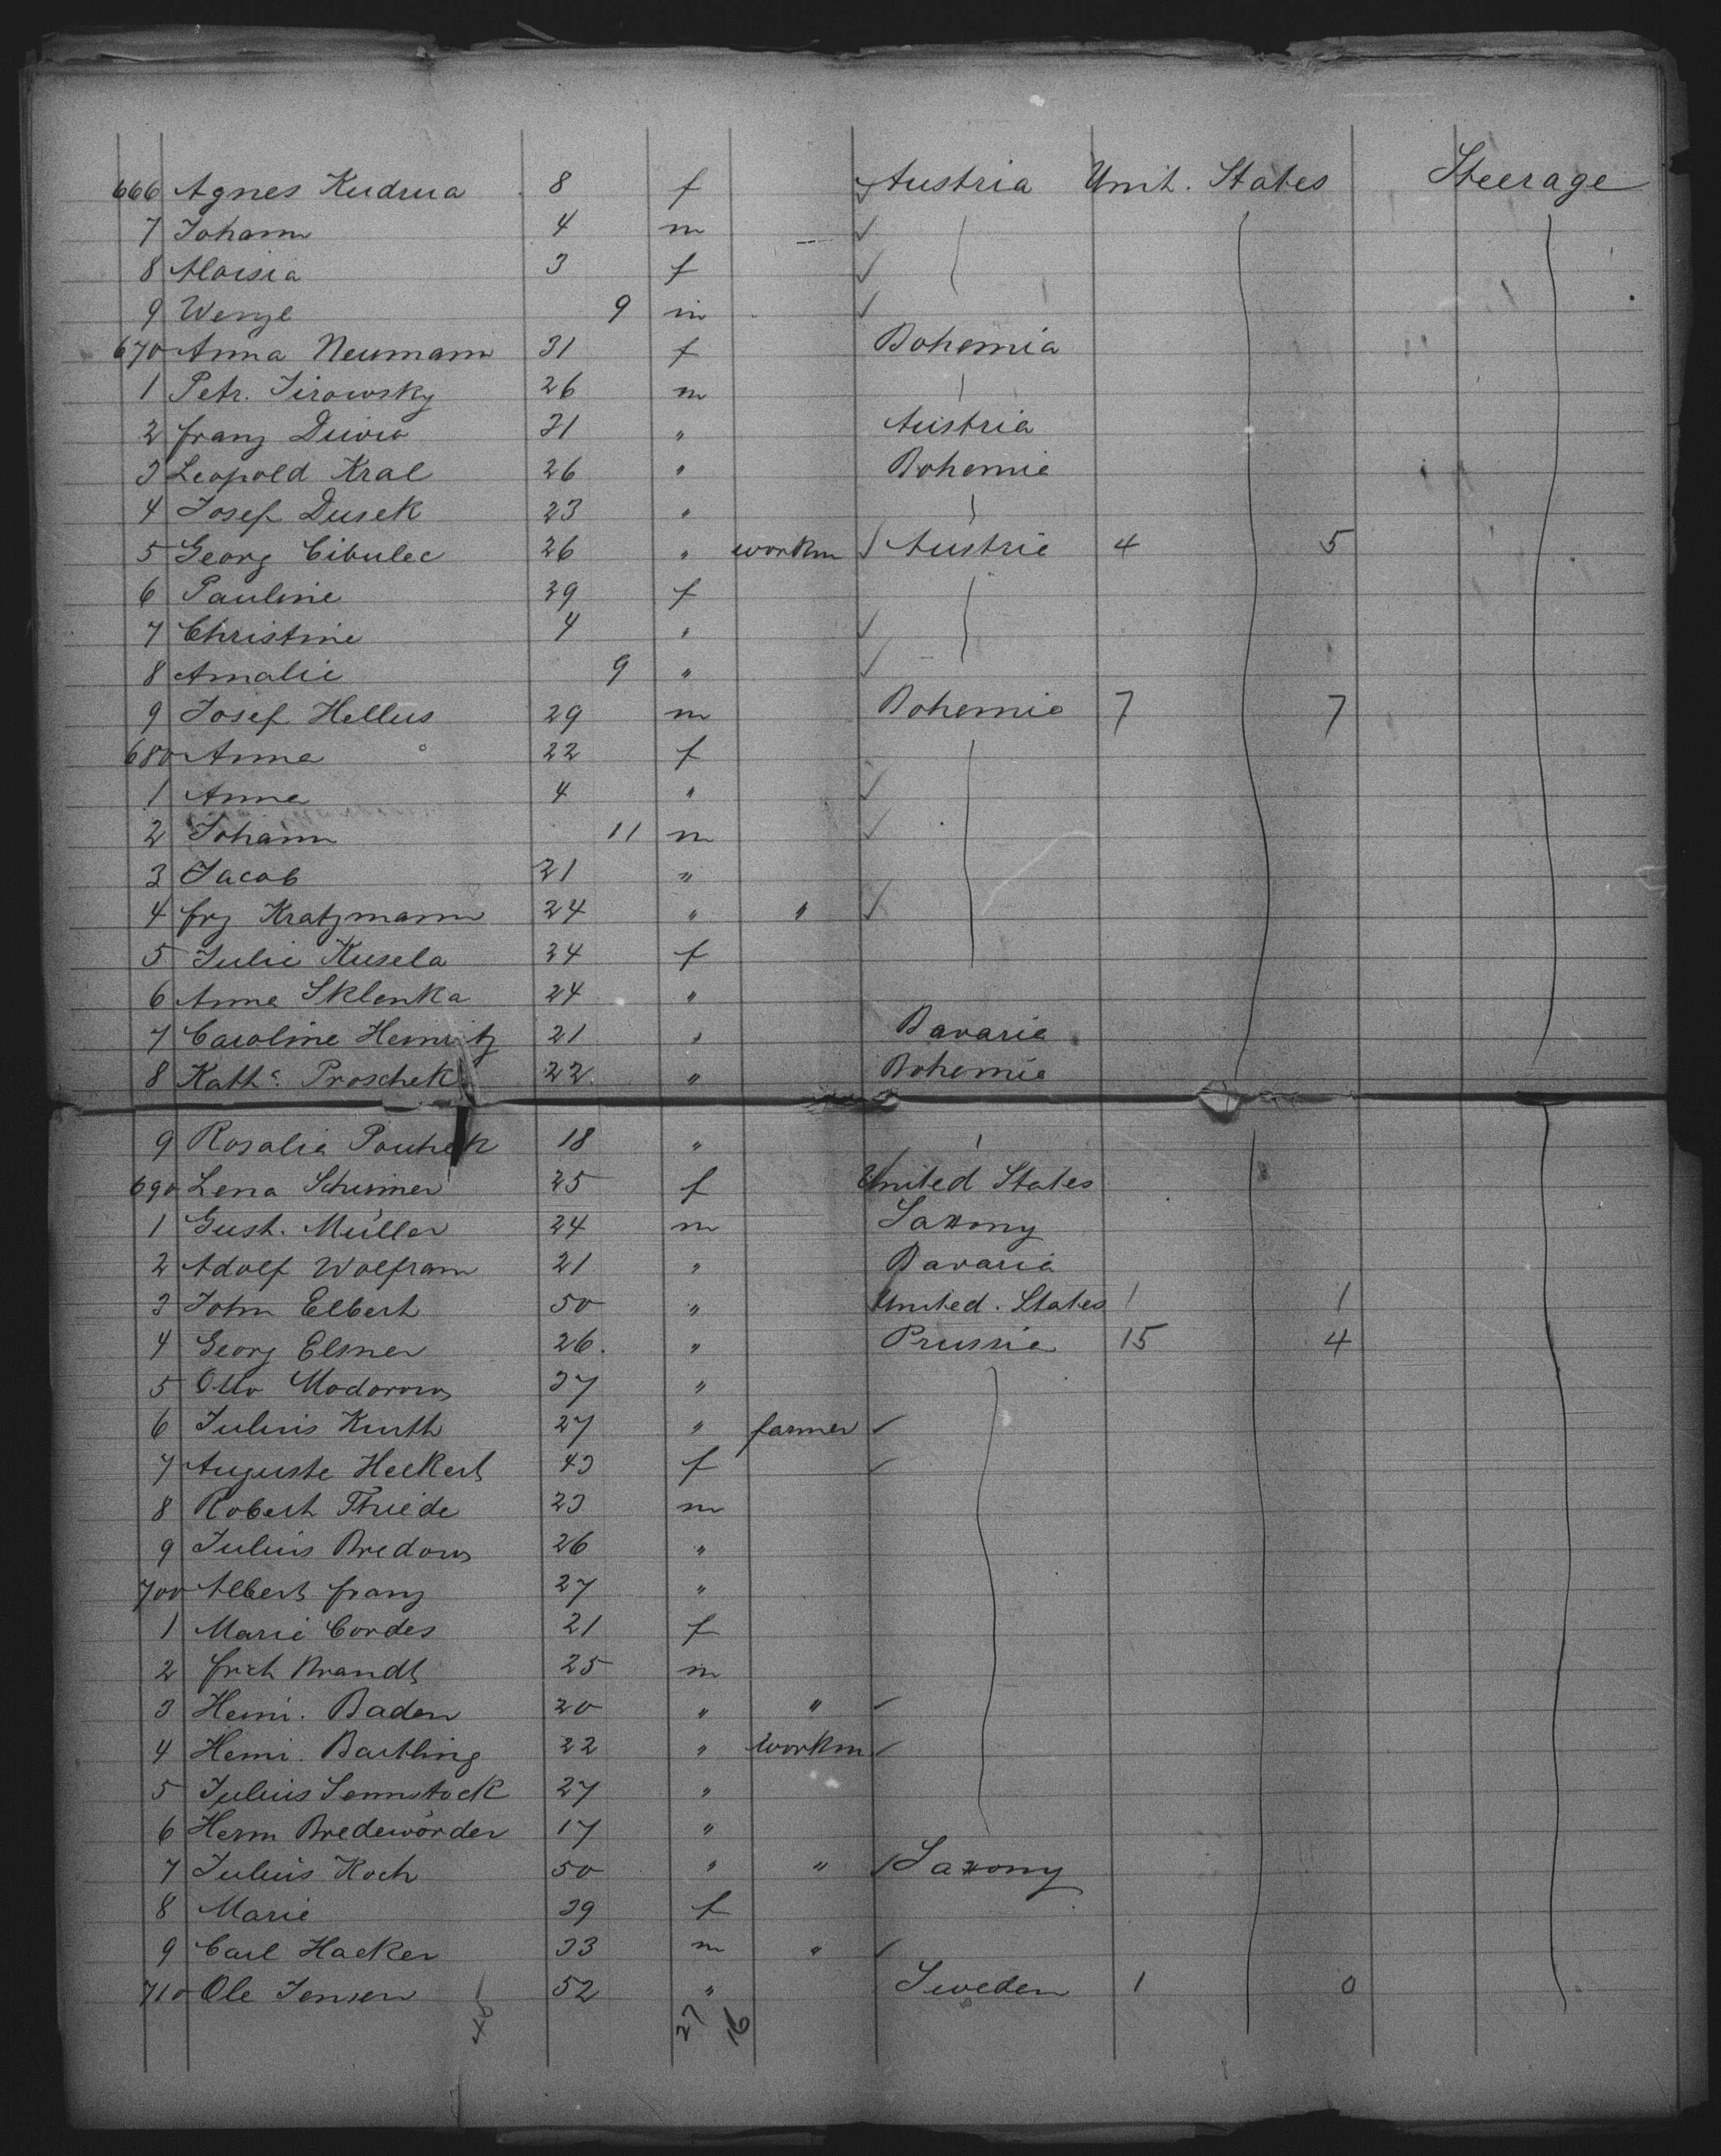 666 Agnes Kudrna 8 f Austria Unit. States Steerage
7 Johann 4 m
8 Aloisia 3 f
9 Wenzl 9 m
670 Anna Neumann 31 f Bohemia
1 Petr. Jirowsky 26 m
2 Franz 31 " Austria
3 Leopold Kral 26 " Bohemia
4 Josef Dusek 23 "
5 Georg Cibulec 26 " workm Austria 4 5
6 Pauline 29 f
7 Christine 4 "
8 Amalie 9 "
9 Josef Hellus 29 m Bohemia 7 7
680 Anna 22 f
1 Anna 4 "
2 Johann 11 m
3 Jacob 21 "
4 Frz Kratzmann 24 " "
5 Julie Kusela 24 f
6 Anna Sklenka 24 "
7 Caroline 21 " Bavaria
8 Katha. Proschek 22 " Bohemia
9 Rosalia 18 "
690 Lena 25 f United States
1 Gust. Müller 24 m Saxony
2 Adolf Wolfram 21 " Bavaria
3 John Elbert 50 " United. States 1 1
4 Georg Elsner 26. " Prussia 15 4
5 Otto 37 "
6 Julius Kurth 27 " farmer
7 Auguste Heckert 43 f
8 Robert Thiede 23 m
9 Julius Bredow 26 "
700 Albert Franz 27 "
1 Marie Cordes 21 f
2 Frch Brandt 25 m
3 Heinr. Baden 20 " "
4 Heinr. Bartling 22 " workm
5 Julius Sennstock 27 "
6 Herm Bredewörder 17 "
7 Julius Koch 50 " " Saxony
8 Marie 39 f
9 Carl Hacker 33 m "
710 Ole Jensen 52 " Sweden 1 0
27 16